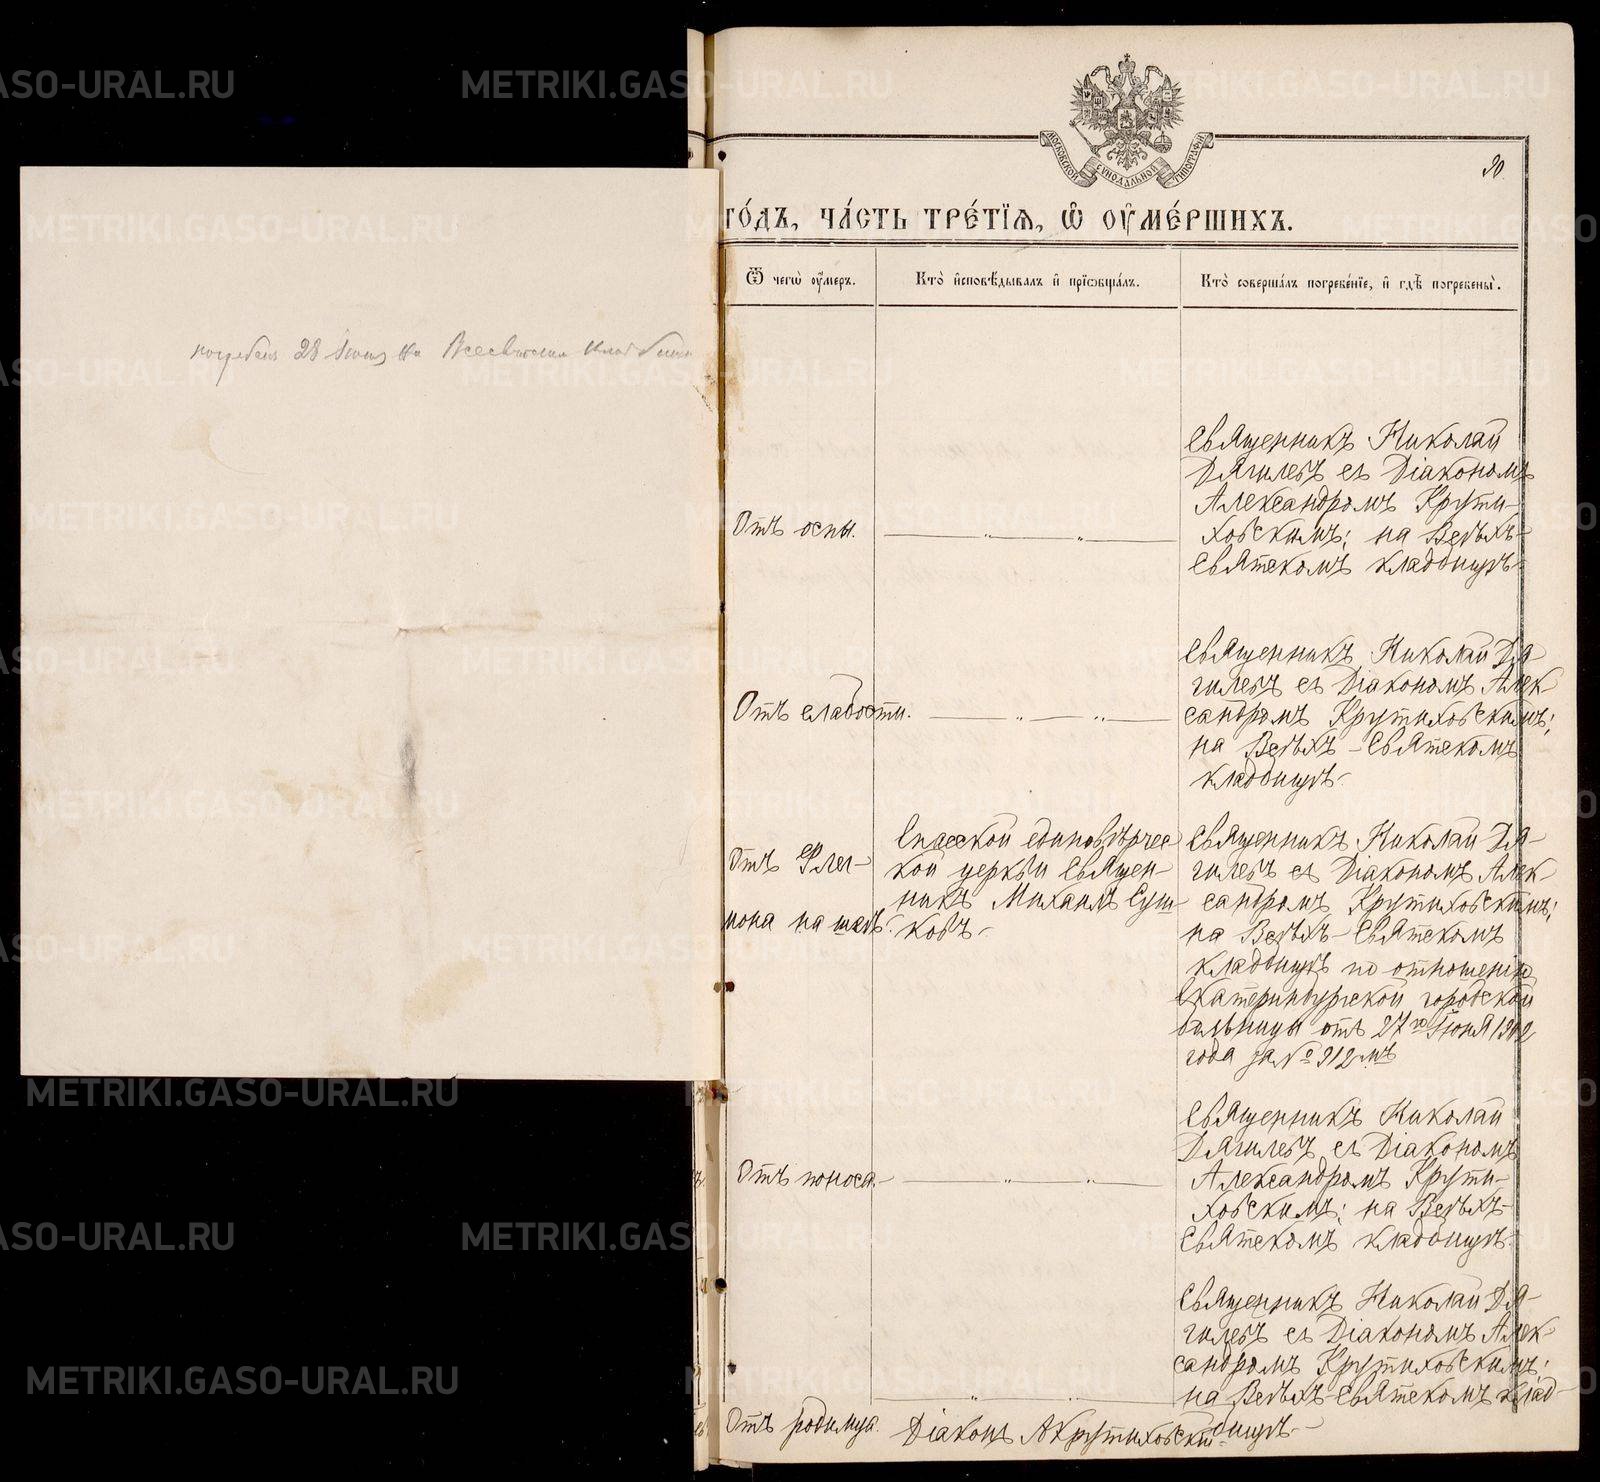 погребенъ 28 Іюня на Всесвятскомъ кладбищѣ
МОСКОВСКОЙ СѴНОДАЛЬНОЙ ТИПОГРАФІИ
90.
го́дъ, ча́сть тре́тїѧ, ѡ҆ ᲂу҆ме́ршихъ.
Ѿ чегѡ̀ ᲂу҆́меръ.
Кто̀ и҆сповѣ́дывалъ и҆ прїѡбща́лъ.
Кто̀ соверша́лъ погребе́нїе, и҆ гдѣ̀ погребены̀.
Отъ оспы.
Священникъ Николай
Дягилевъ съ Діакономъ
Александромъ Крути-
ховскимъ; на Всѣхъ-
Святскомъ кладбищѣ-
Отъ слабости.
Священникъ Николай Дя-
гилевъ съ Діакономъ Алек-
сандромъ Крутиховскимъ;
на Всѣхъ-Святскомъ
кладбищѣ-
Отъ Флег-
мона на шеѣ.
Спасской единовѣрчес
кой церкви Священ-
никъ Михаилъ Суш-
ковъ-
Священникъ Николай Дя-
гилевъ съ Діакономъ Алек-
сандромъ Крутиховскимъ;
на Всѣхъ-Святскомъ
кладбищѣ по отношенію
Екатеринбургской городской
больницы отъ 27го Іюня 1902
года за № 912мъ
Отъ поноса.-
Священникъ Николай
Дягилевъ съ Діакономъ
Александромъ Крути-
ховскимъ; на Всѣхъ-
Святскомъ кладбищѣ.
Отъ родимца.
Священникъ Николай Дя-
гилевъ съ Діакономъ Алек-
сандромъ Крутиховскимъ;
на Всѣхъ-Святскомъ клад-
бищѣ-
Діаконъ А Крутиховскій
METRIKI.GASO-URAL.RU